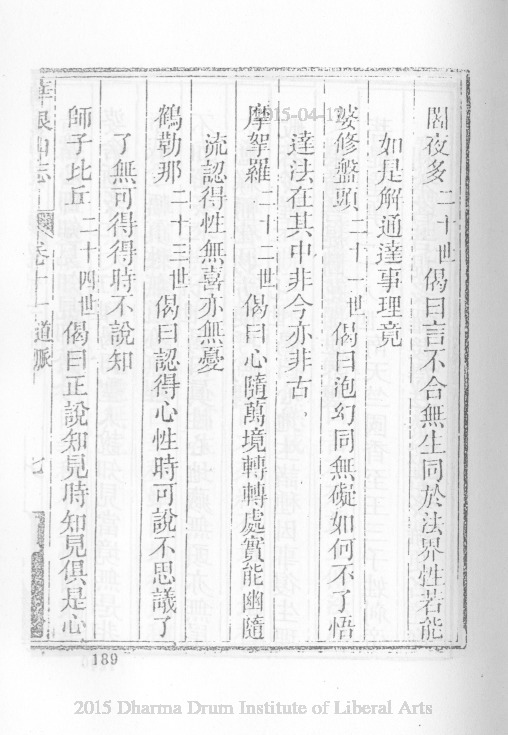 闍夜多二十世偈曰言不合無生同於法界性若能
如是解通達事理竟
婆修盤頭二十一世偈曰泡幻同無礙如何不了悟
達法在其中非今亦非古
摩拏羅二十二世偈曰心隨萬境轉轉處實能幽隨
流認得性無喜亦無憂
鶴勒那二十三世偈曰認得心性時可說不思議了
了無可得得時不說知
師子比丘二十四世偈曰正說知見時知見俱是心
山志 卷十一 道脈 七
189
2015 Dharma Drum Institute of Liberal Arts